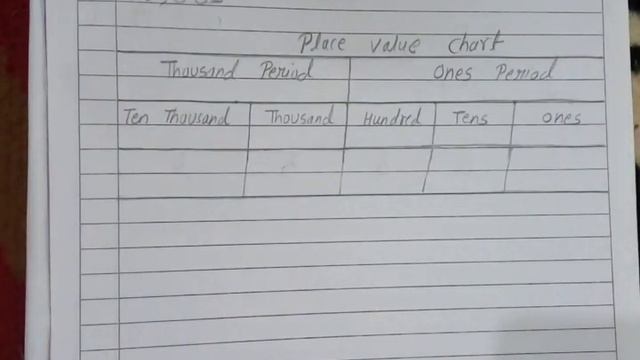 Place value chart
Thousand Period Ones Period
Ten Thousand Thousand Hundred Tens Ones